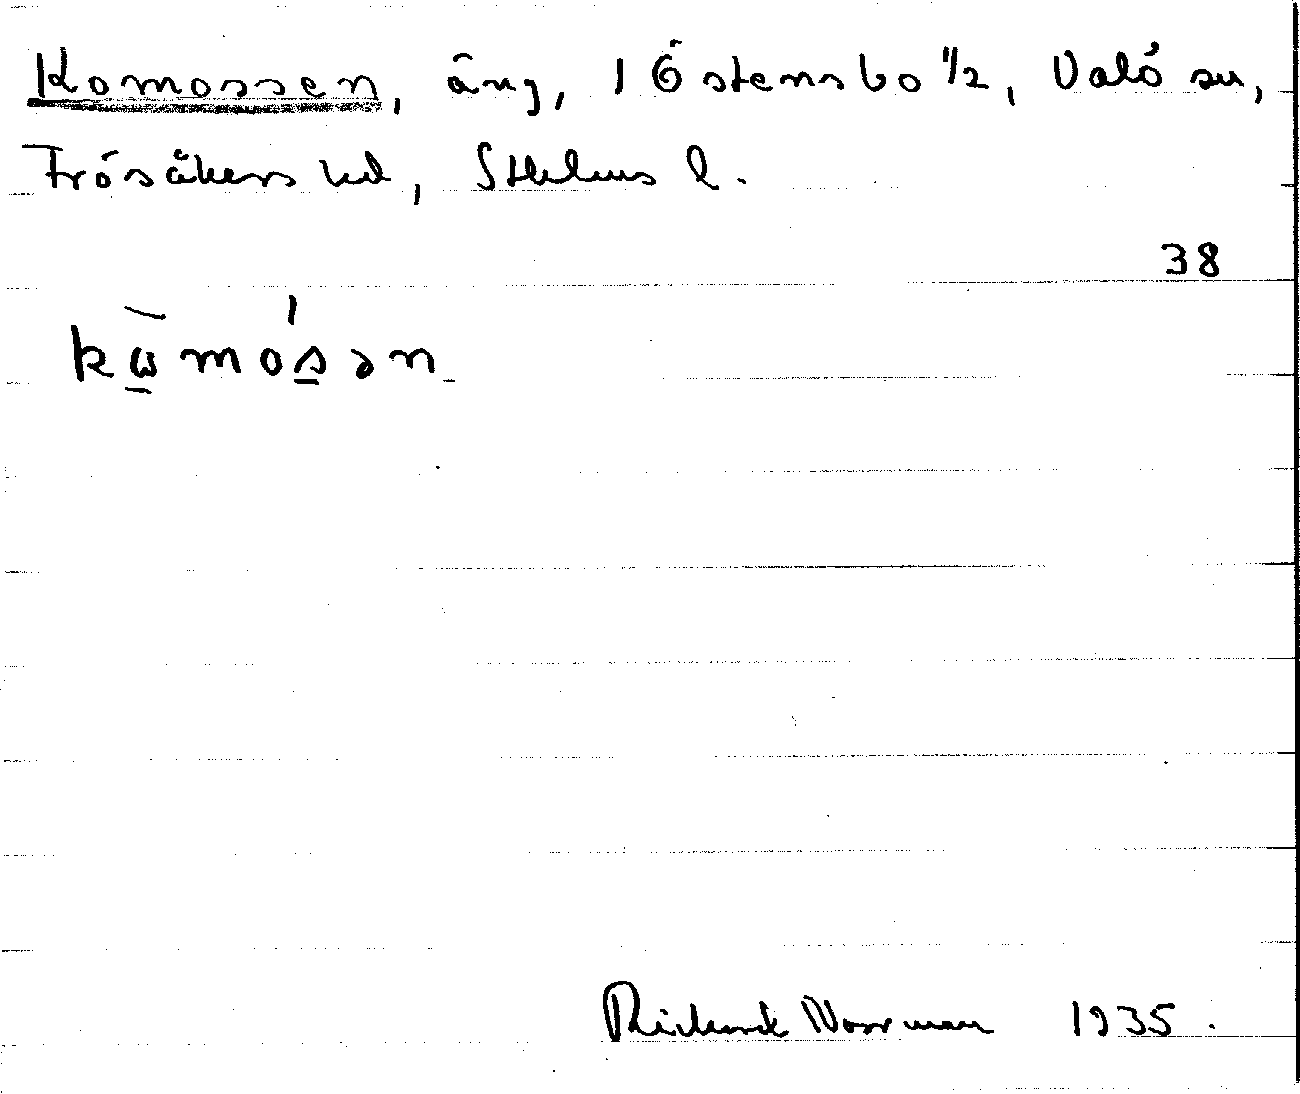 Komossen, äng, 1 Östensbo 1/2, Valö sn,
Frösåkers hd, Sthlms l.
38
kὼ̲mós̲ən
Rickard Norrman 1935.